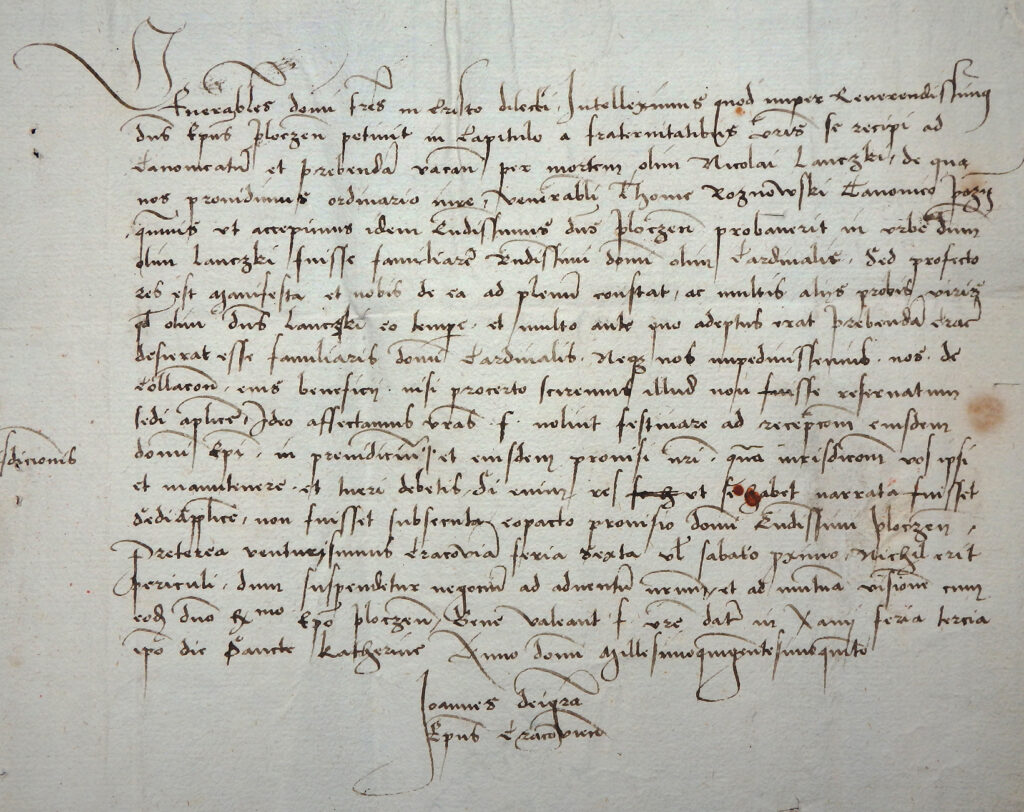 Venerabiles domini fratres in Cristo dilecti. Intelleximus quod nuper Reverendissimus
dns Epus ploczen petiuit in Capitulo a fraternitatibus vris se recipi ad
Canonicatu et prebenda vacan per mortem olim Nicolai Lanczki, de qua
nos prouidimus ordinario iure, venerabili Thome Roznowski Canonico
quamuis ut accepimus idem Rndissimus dns ploczen probauerit in vrbe dum
olim Lanczki fuisse familiare Rndissimi domini olim Cardinalis. Sed profecto
res est manifesta et nobis de ea ad plenu constat, ac multis alijs probis viris
qd olim dns Lanczki eo tempe. et multo ante quo adeptus erat prebenda Crac
desierat esse familiaris domini Cardinalis. Neqz nos impediuissemus. nos. de
Collacon. eius beneficij. nisi procerto sciremus illud non fuisse reseruatum
sedi aplice, Ideo affectamus vras. f. nolint festinare ad recepcom eiusdem
domini Epi. in preiudiciu et eiusdem prouisi nri. qua iurisdicom vos ipsi
sdicionis
et manutenere. et tueri debetis. Si enim res ut se habet narrata fuisset
Sedi Applice. non fuisset subsecuta eopacto prouisio domini Rndissimi ploczen.
Preterea venturi sumus Cracouia feria sexta vl sabato pximo. Nichil erit
periculi. dum suspendetur negociu ad aduentu nrum, et ad mutua visione cum
eod dno Rmo Epo ploczen, Bene valeant f. vre dat in feria tercia
ipo die Sancte Katherine Anno domini Millesimoquingentesimoquinto
Joannes dei gra
Epus Cracouien